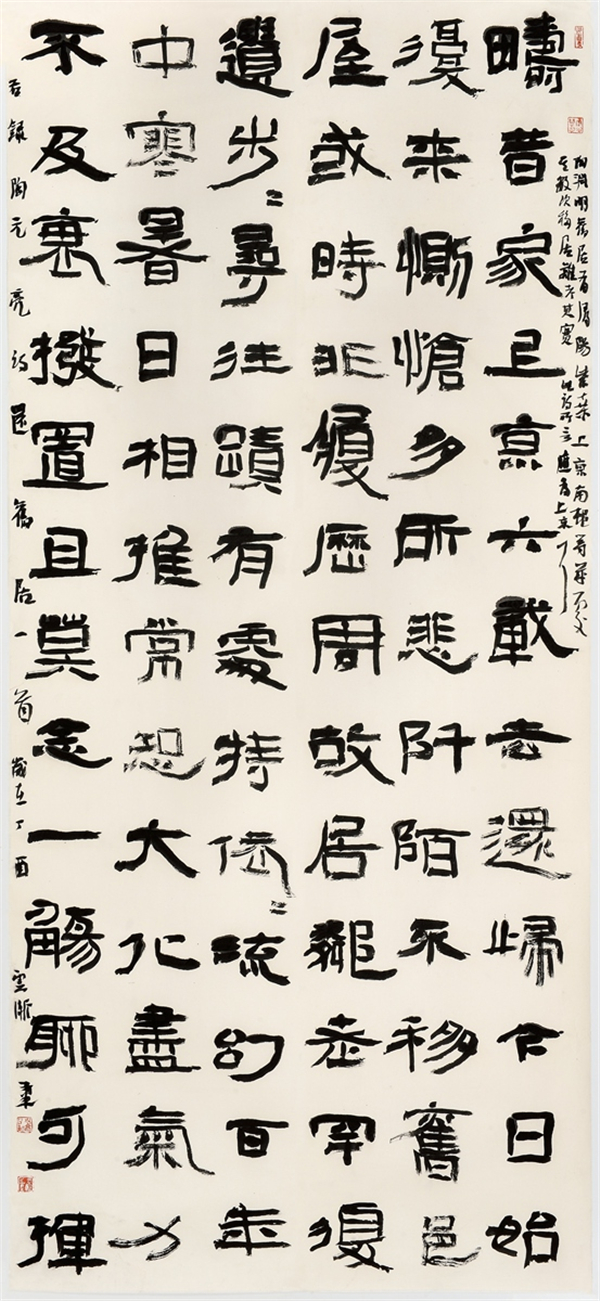 疇昔家上京六載去還歸今日始
復來惻愴多所悲阡陌不移舊邑
屋或時非履歷周故居鄰老罕復
遺步〻尋往蹟有處特依〻流幻百年
中寒暑日相推常恐大化盡氣力
不及衰撥置且莫念一觴聊可揮
右錄陶元亮詩還舊居一首 歲在丁酉 雲
陶淵明舊居有潯陽柴桑上京南村等
數次移居難考其實 但詩所言應為上京